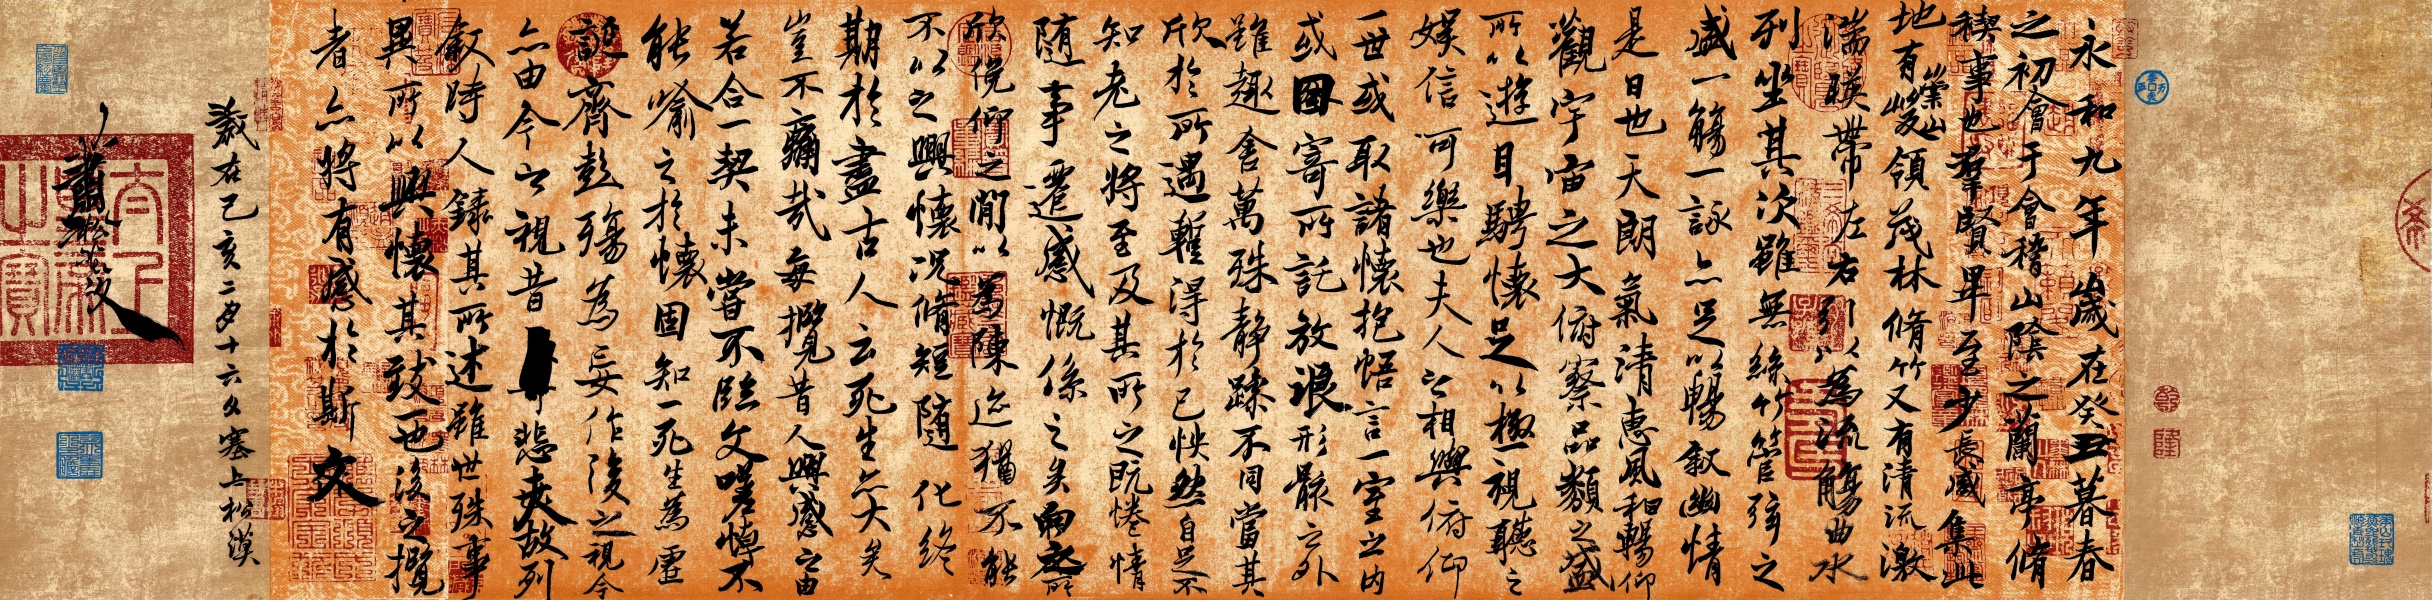 永和九年歲在癸丑暮春
之初會于會稽山陰之蘭亭脩
禊事也羣賢畢至少長咸集此
地有崇山峻領茂林脩竹又有清流激
湍暎帶左右引以為流觴曲水
列坐其次雖無絲竹管弦之
盛一觴一詠亦足以暢敘幽情
是日也天朗氣清惠風和暢仰
觀宇宙之大俯察品類之盛
所以遊目騁懷足以極視聽之
娛信可樂也夫人之相與俯仰
一世或取諸懷抱悟言一室之內
或因寄所託放浪形骸之外
雖趣舍萬殊靜躁不同當其
欣於所遇暫得於己怏然自足不
知老之將至及其所之既惓情
隨事遷感慨係之矣向之所
欣俛仰之間以為陳迹猶不能
不以之興懷況脩短隨化終
期於盡古人云死生亦大矣
豈不痛哉每攬昔人興感之由
若合一契未嘗不臨文嗟悼不
能喻之於懷固知一死生為虛
誕齊彭殤為妄作後之視今
亦由今之視昔悲夫故列
敘時人錄其所述雖世殊事
異所以興懷其致一也後之攬
者亦將有感於斯文
歲在己亥二月十六日塞上松漠